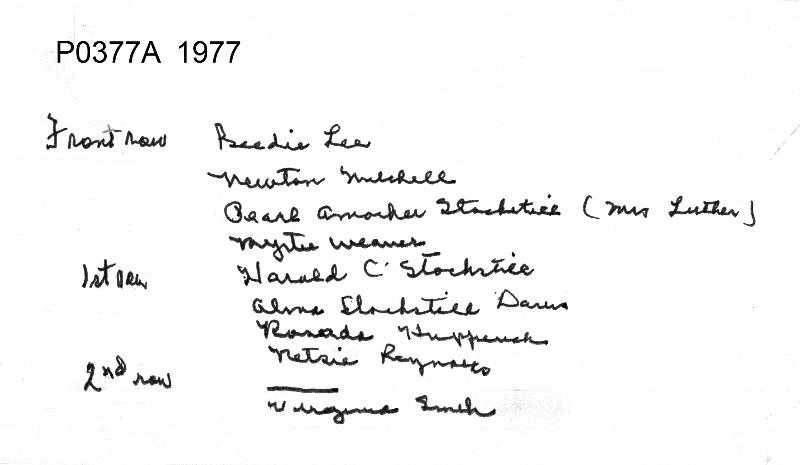 P0377A 1977
Front row Beedie Lee
Newton Mitchell
Pearl Amacker Stockstill (Mrs Luther)
Myrtie Weaver
1st row Harold C. Stockstill
Alma Stockstill Davis
Netsie Reynolds
2nd row
Virginia Smith